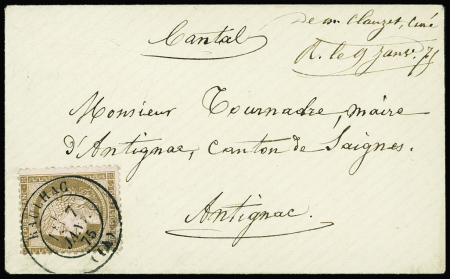 de mr Clauzet, curé
R. le 9 janvr. 75
Cantal
Monsieur Tournadre, maire
d'Antignac, canton de Saignes.
Antignac.
7
JANV.
75